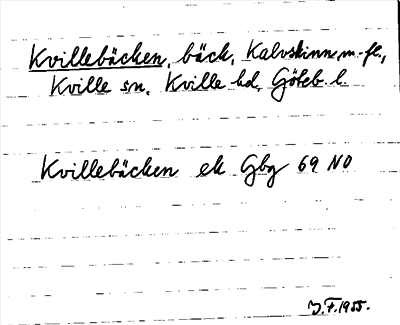 Kvillebäcken, bäck, Kalvskinn m. fl.,
Kville sn, Kville hd, Göteb. l.
Kvillebäcken ek Gbg 69 NO
J.F. 1955.